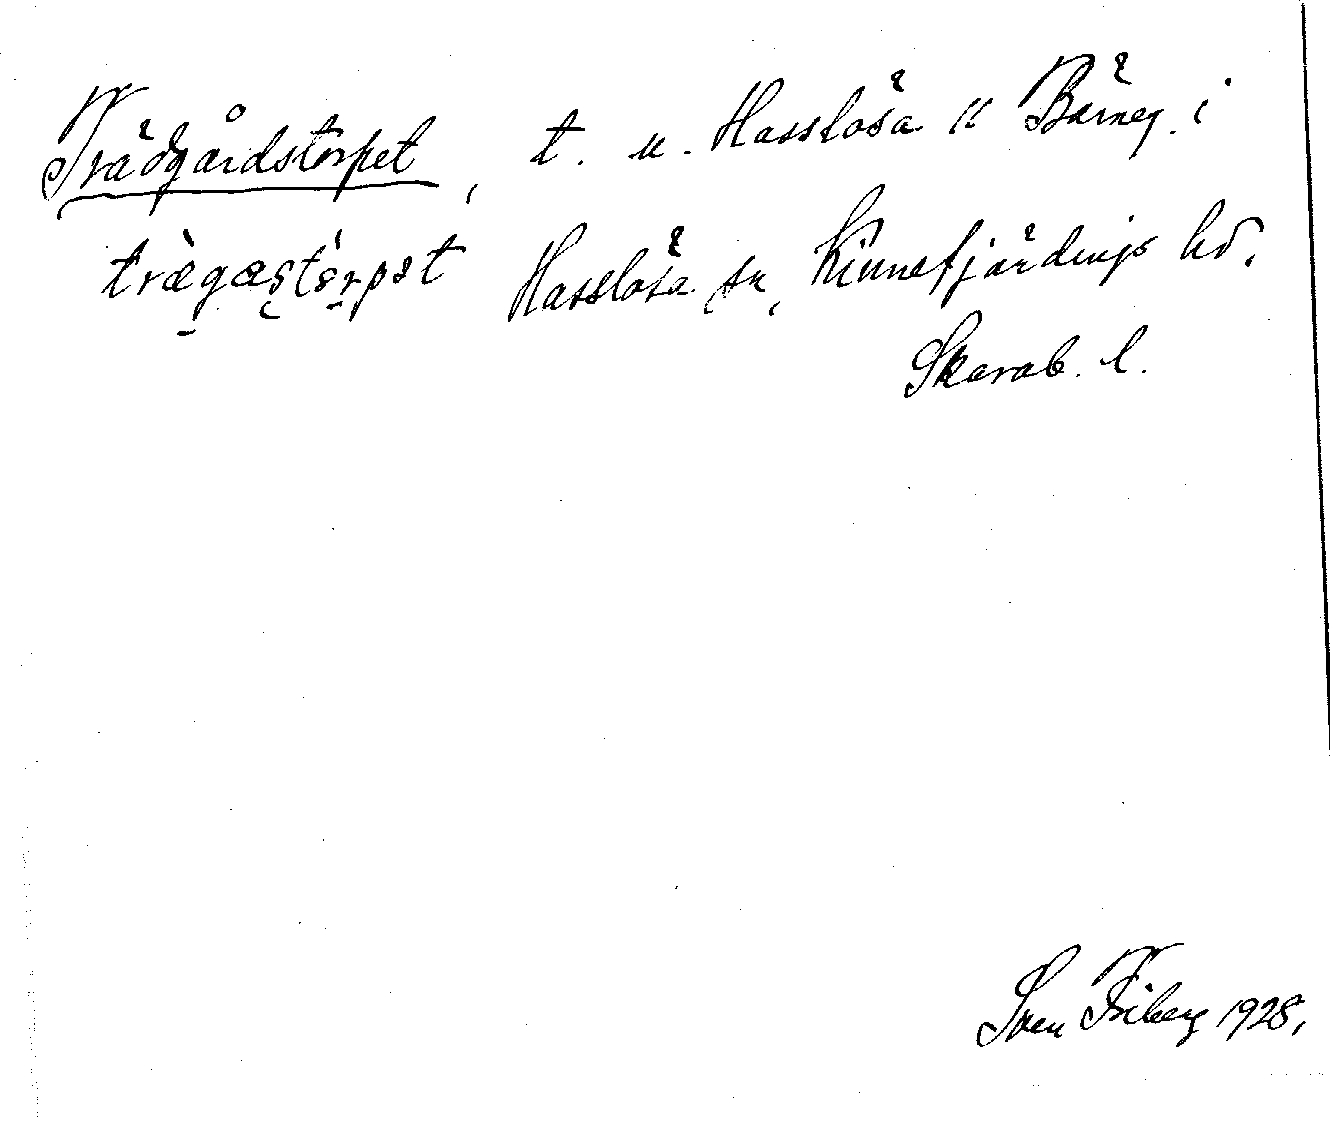 Trädgårdstorpet, t. u. Hasslösa " Bärneg. i
trægæstørpət Hasslösa sn, Kinnefjärdings hd.
Skarab. l.
Sven Friberg 1928.